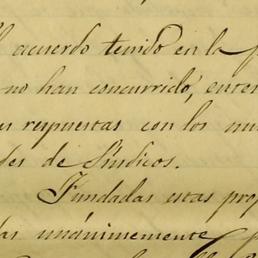 l acuerdo tenido en la
no han concurrido, enter
respuestas con los nu
des de Síndicos.
Fundadas estas prop
das unánimemente